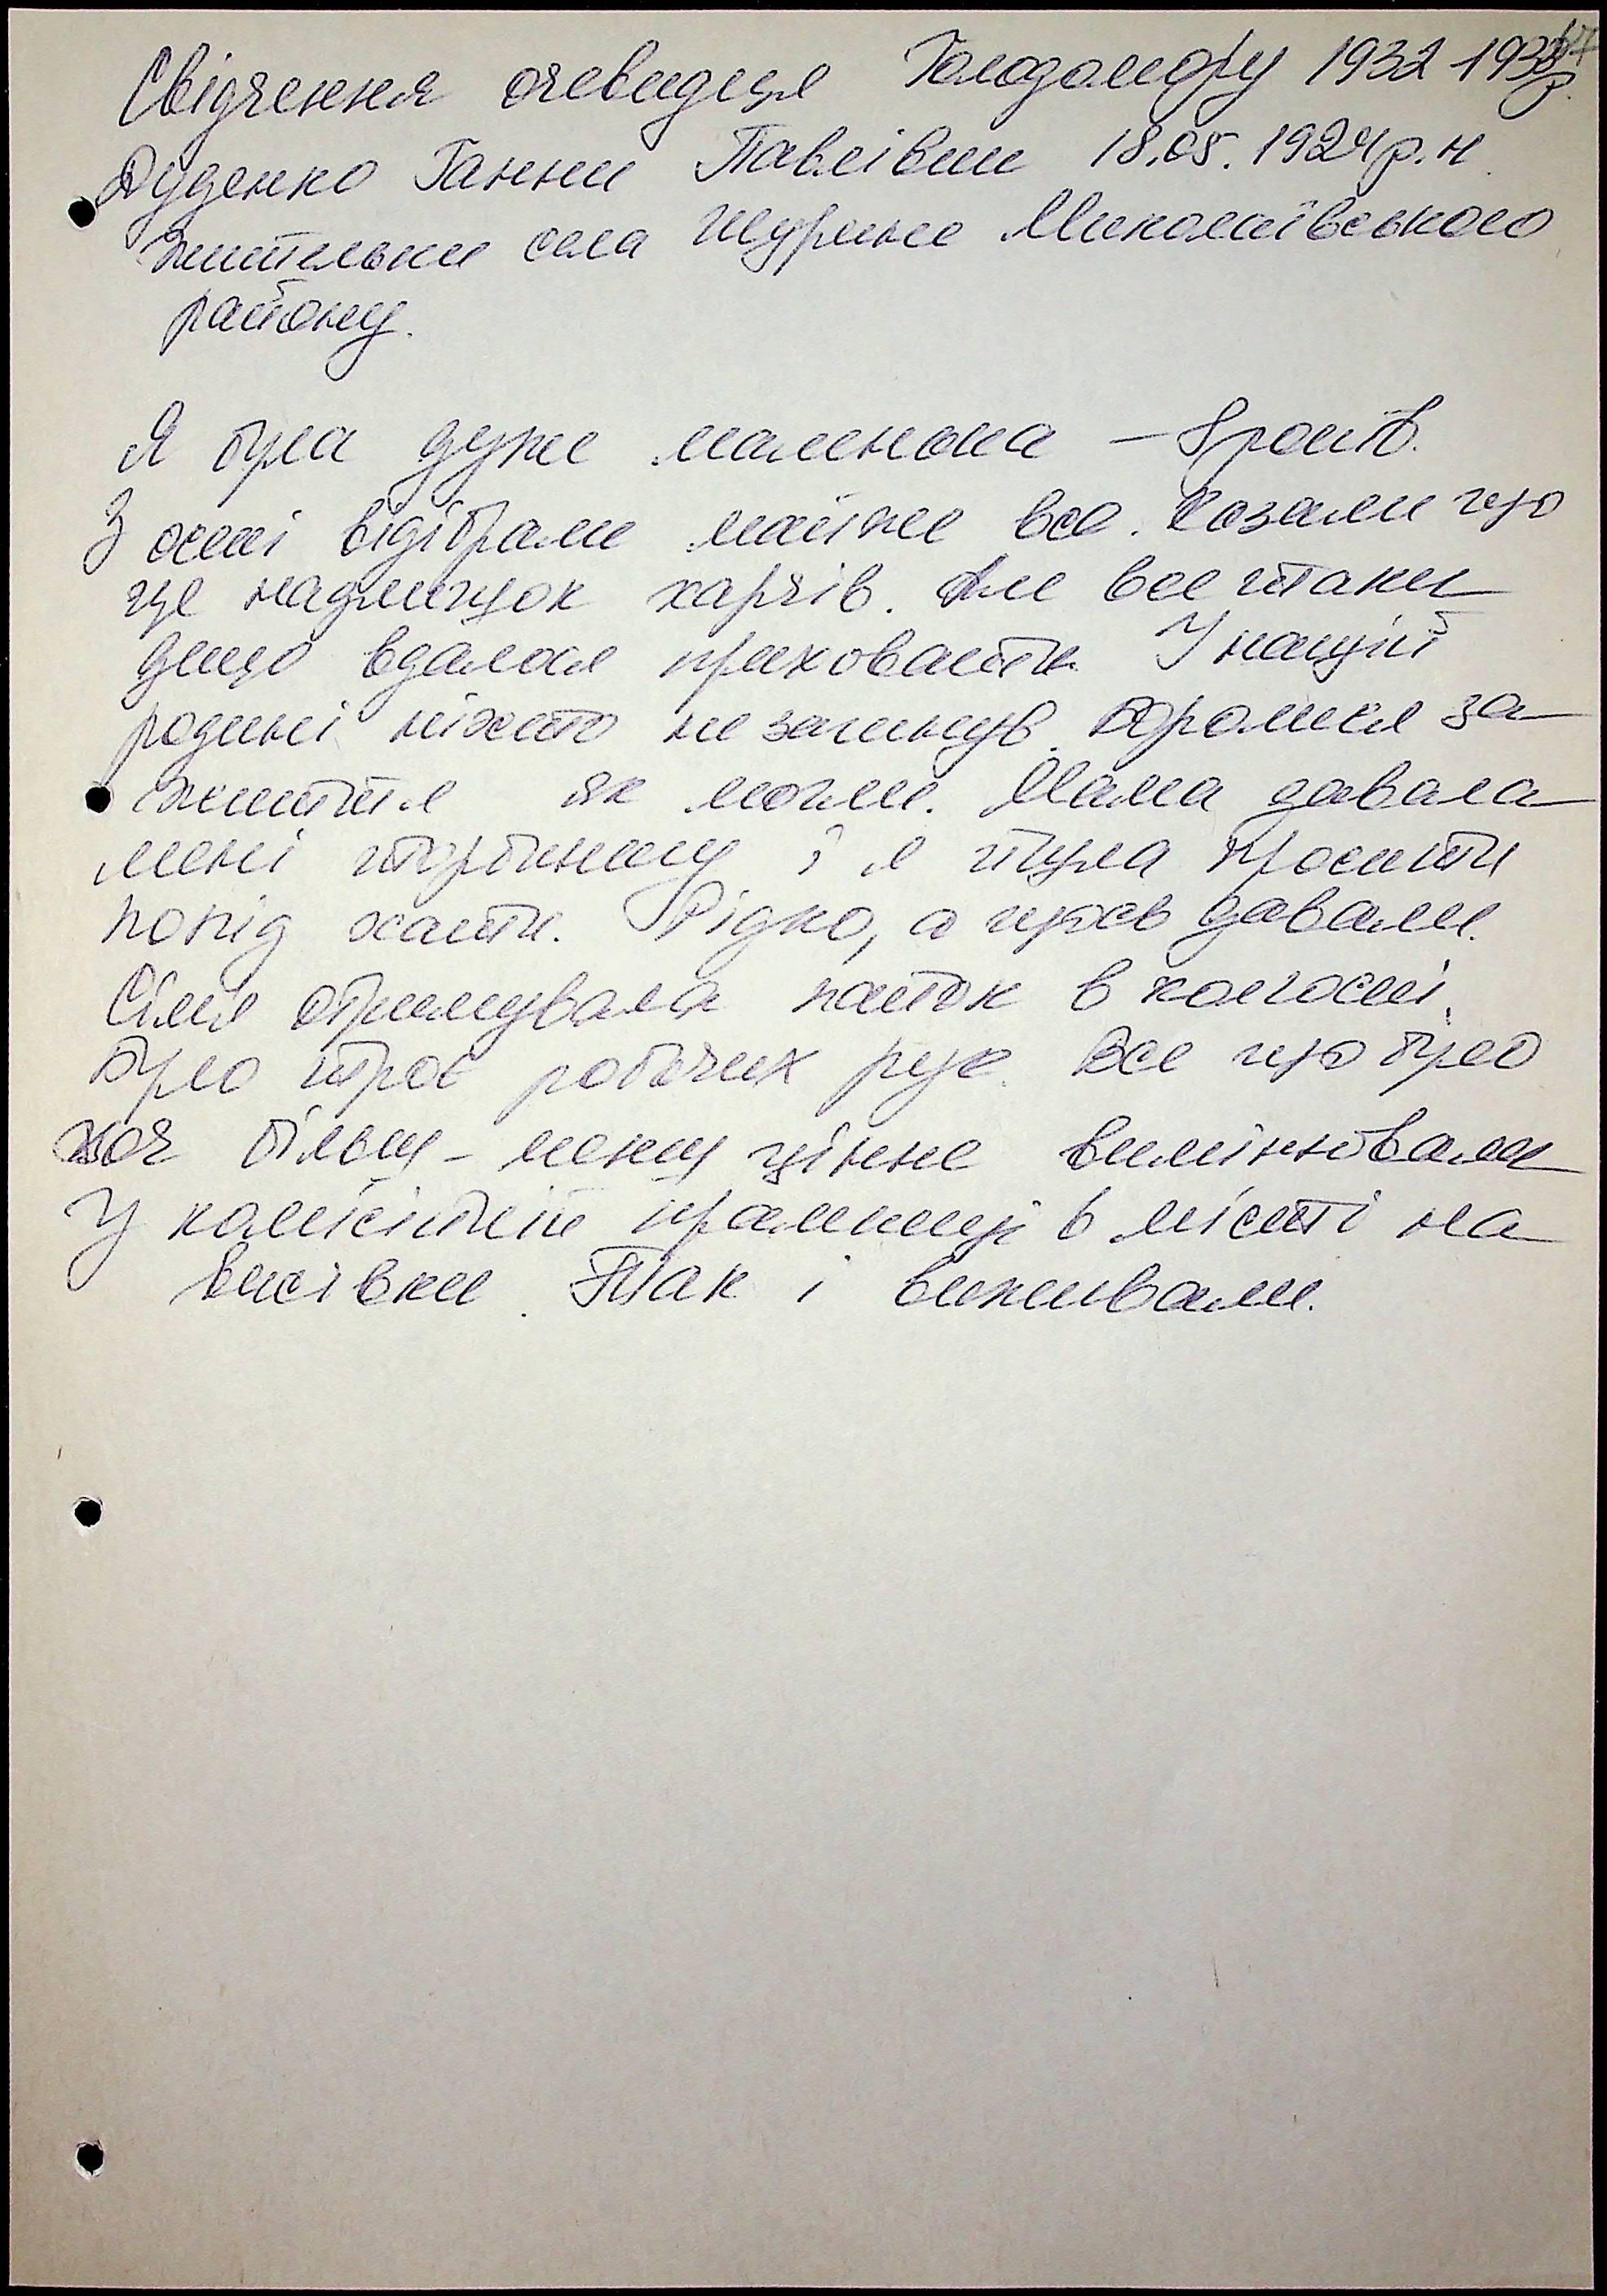 Свідчення очевидця Голодомору 1932-1933р.
Дуденко Ганни Павлівни 18.05.1924р.н
жительки села Шурине Миколаївського
району.
Я була дуже маленька – 8 років.
З осені відібрали майже все. Казали що
це надлишок харчів. Але все таки
дещо вдалося приховати. У нашій
родині ніхто не загинув. Боролися за
життя як могли. Мама давала
мені торбинку і я йшла просити
попід хати. Рідко, а щось давали.
Сімя отримувала пайок в колгоспі.
Було троє робочих рук. Все що було
хоч більш-менш цінне вимінювали
У комісійній крамниці в місті на
висівки. Так і виживали.